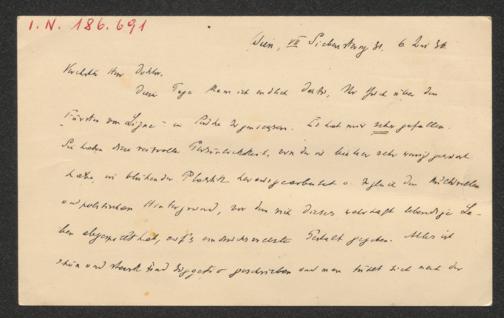 I. N. 186.691
Wien, VII Siebensterng 31. 6. Dez 36
Verehrter Herr Doktor.
Diese Tage kam ich endlich dazu, Ihr Buch über den
Fürsten von Ligne – in Ruhe zu geniessen. Es hat mir sehr gefallen.
Sie haben diese reizvolle Persönlichkeit, von der ich bisher sehr wenig gewusst
habe, in blühender Plastik herausgearbeitet u. zugleich den kulturellen
und politischen Hintergrund, vor dem sich dieses wahrhaft lebendige Le-
ben abgespielt hat, auf's eindrucksvollste Gestalt gegeben. Alles ist
schön und stark und suggestiv geschrieben und man sehnt sich nach der